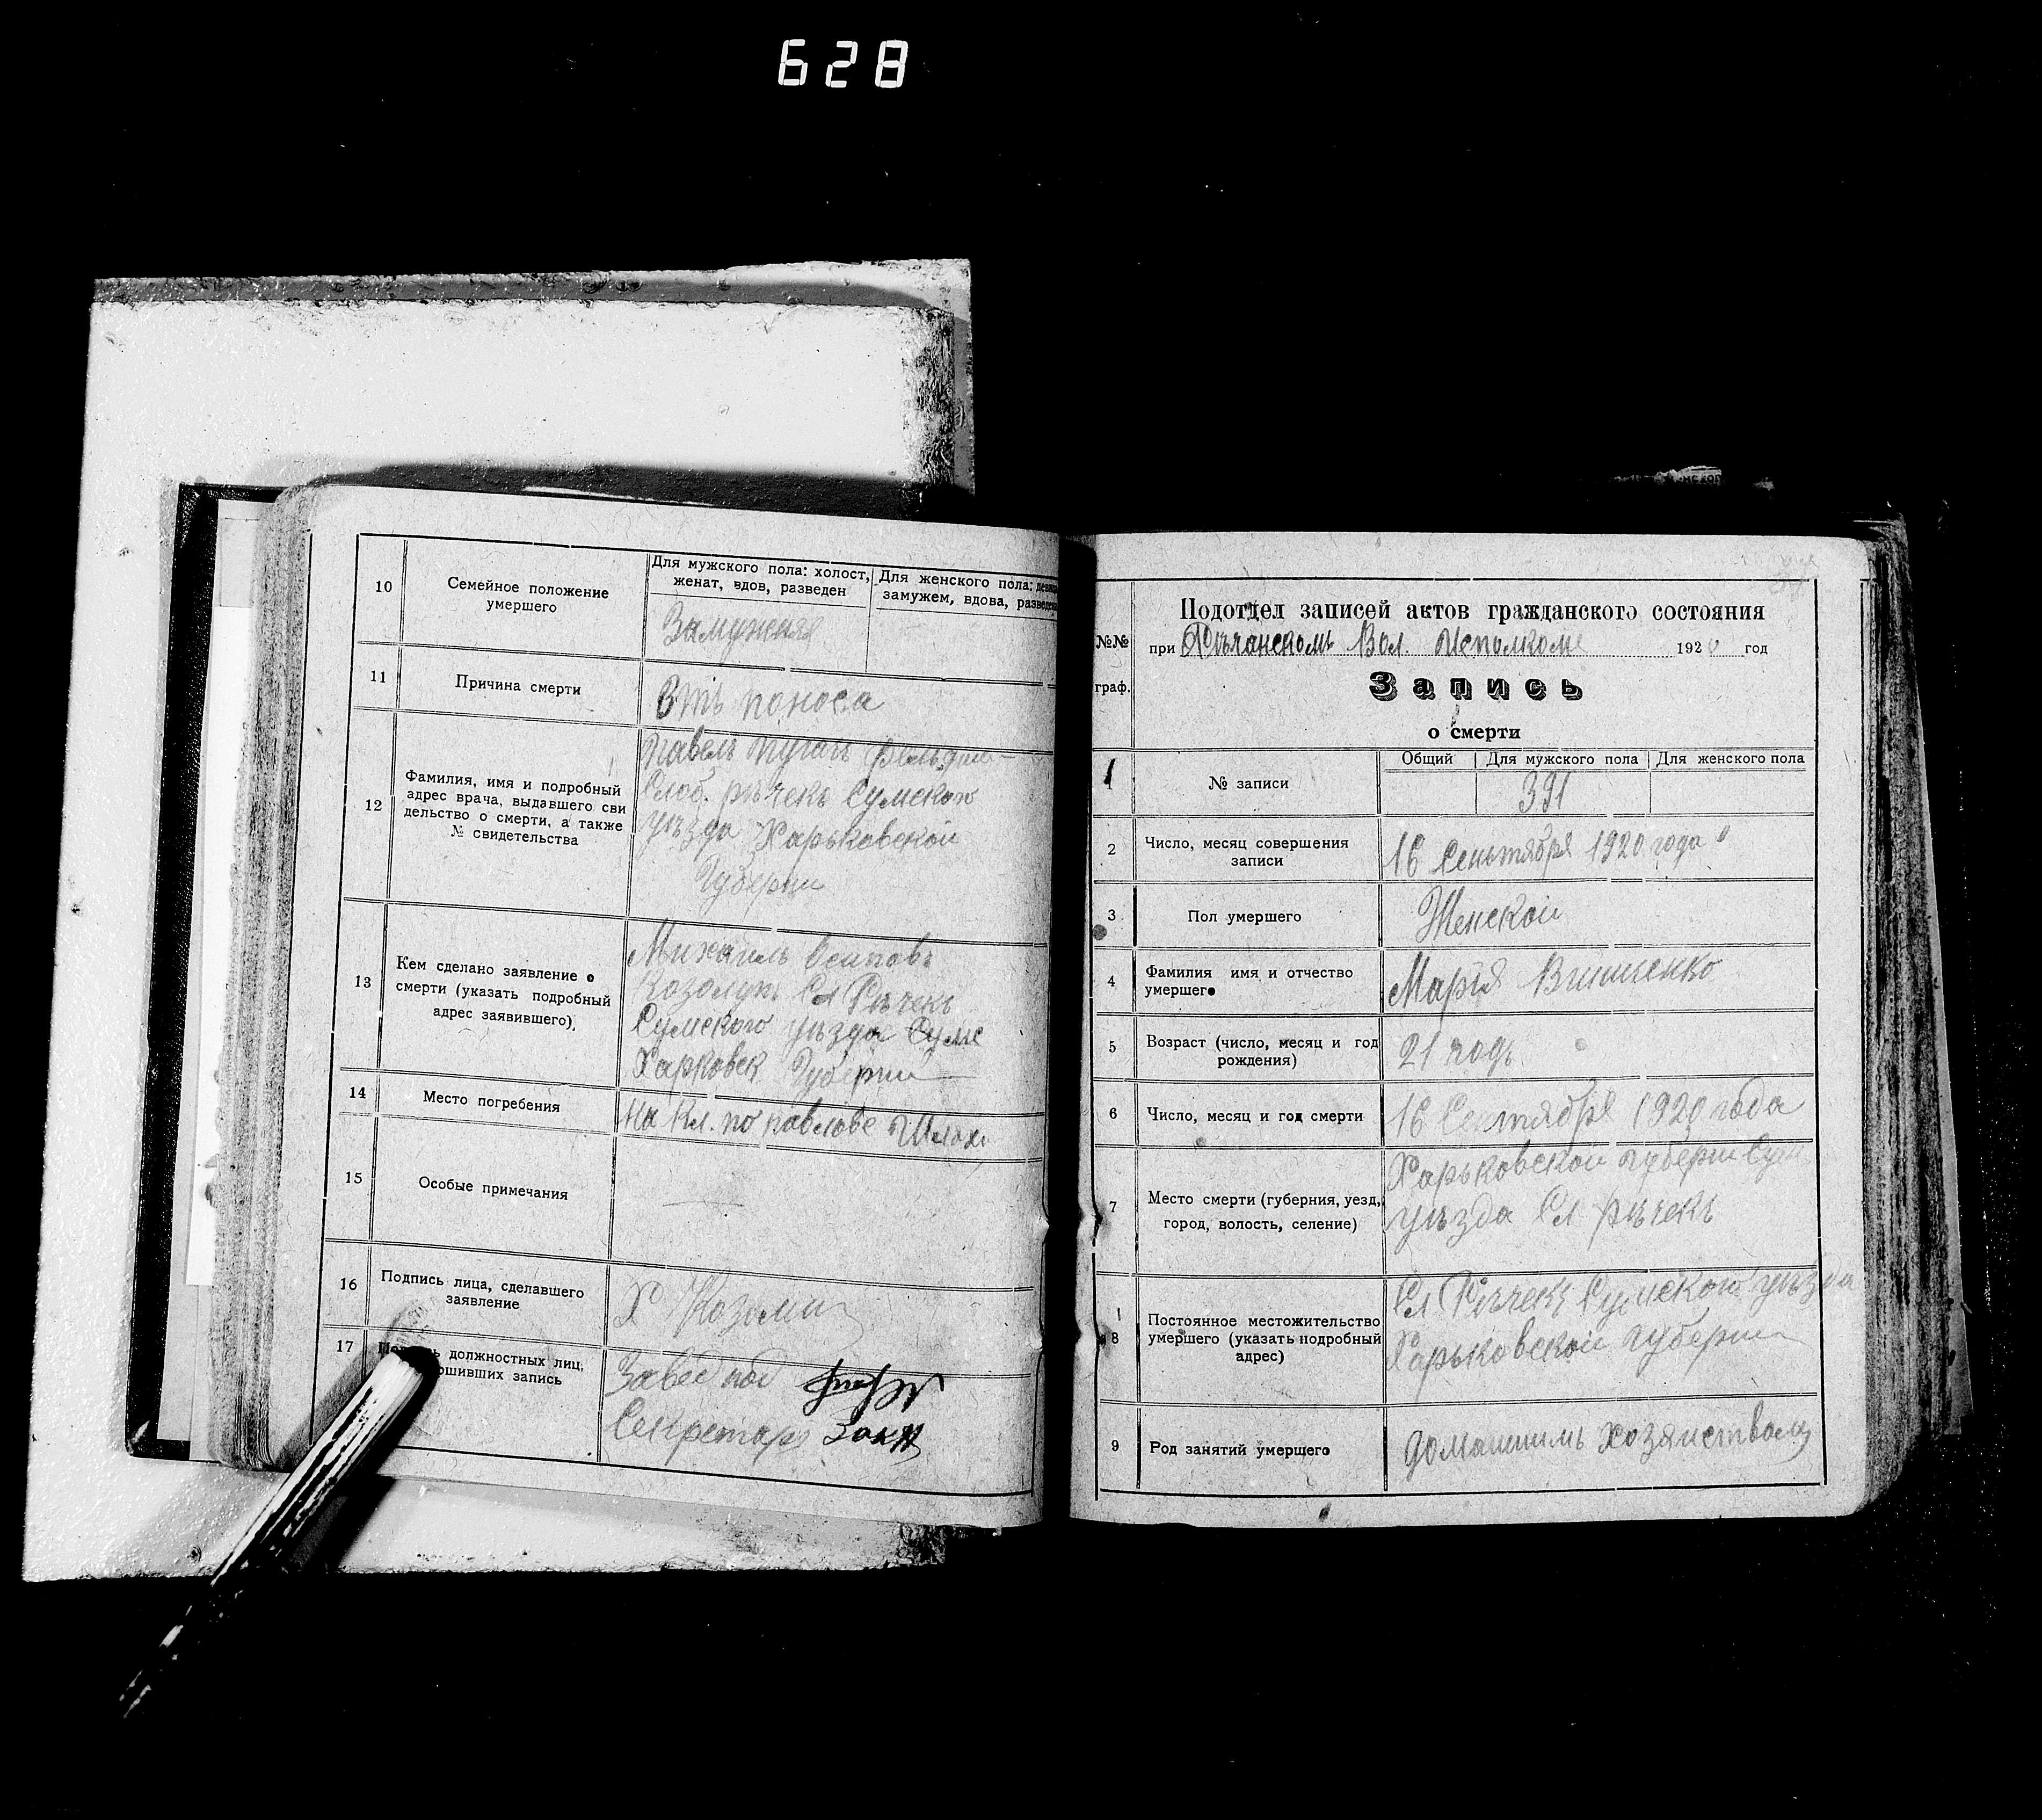 628
10
Семейное положение
умершего
Для мужского пола: холост,
женат, вдов, разведен
Для женского пола:
замужем, вдова,
Замужняя
11
Причина смерти
Отъ поноса
12
Фамилия, имя и подробный
адрес врача, выдавшего сви
дельство о смерти, а также
№ свидетельства
Павелъ Пугачъ
Слоб. рѣчекъ Сумского
уѣзда Харьковской
Губерни
13
Кем сделано заявление о
смерти (указать подробный
адрес заявившего)
Михаилъ Осиповъ
Сл Рѣчекъ
Сумского уѣзда Сумс
Харковск Губерни
14
Место погребения
На Кл. по павлове
15
Особые примечания
16
Подпись лица, сделавшего
заявление
Х
17
должностных лиц,
Завед под
Секретарь
№№
граф.
Подотдел записей актов гражданского состояния
при Рѣчанскомъ Вол. Исполкоме 1920 год
Запись
о смерти
1
№ записи
Общий
Для мужского пола
Для женского пола
391
2
Число, месяц совершения
записи
16 Сентября 1920 года
3
Пол умершего
Женской
4
Фамилия имя и отчество
умершего
Марія
5
Возраст (число, месяц и год
рождения)
21 годъ
6
Число, месяц и год смерти
16 Сентября 1920 года
7
Место смерти (губерния, уезд,
город, волость, селение)
Харьковской губерни Сум
уѣзда Сл рѣчекъ
8
Постоянное местожительство
умершего (указать подробный
адрес)
Сл Рѣчекъ Сумского уѣзда
Харьковской губерни
9
Род занятий умершего
домашнимъ хозяиством